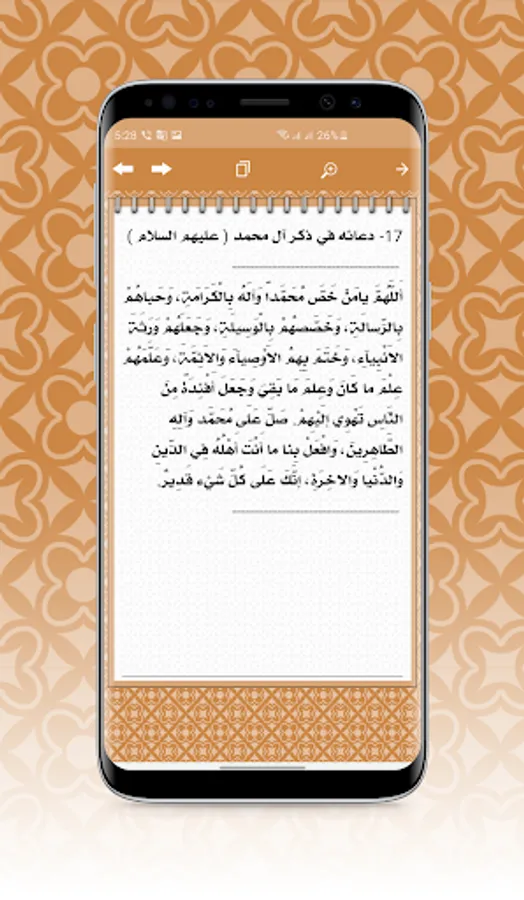 5:28
26%
17- دعائه في ذكر آل محمد ( عليهم السلام )
اَللَّهُمَّ يامَنْ خَصَّ مُحَمَّداً وَآلَهُ بِالْكَرَامَةِ، وَحَباهُمْ
بِالرِّسالَةِ، وَخَصَّصَهُمْ بِالْوَسِيلَةِ، وَجَعَلَهُمْ وَرَثَةَ
الاَنْبِياَءِ، وَخَتَمَ بِهِمُ الاَوْصِياَءَ وَالائِمَّةَ، وَعَلَّمَهُمْ
عِلْمَ ما كَانَ وَعِلْمَ ما بَقِيَ وَجَعَلَ أَفْئِدَةً مِنَ
النَّاسِ تَهْوِي إلَيْهِمْ. صَلِّ عَلى مُحَمَّد وَآلِهِ
الطَّاهِرِينَ، وَافْعَلْ بِنا ما أَنْتَ أَهْلُهُ فِي الدِّينِ
وَالدُّنْيا وَالاخِرَةِ، إنَّكَ عَلَى كُلِّ شَيْء قَدِيرٌ.